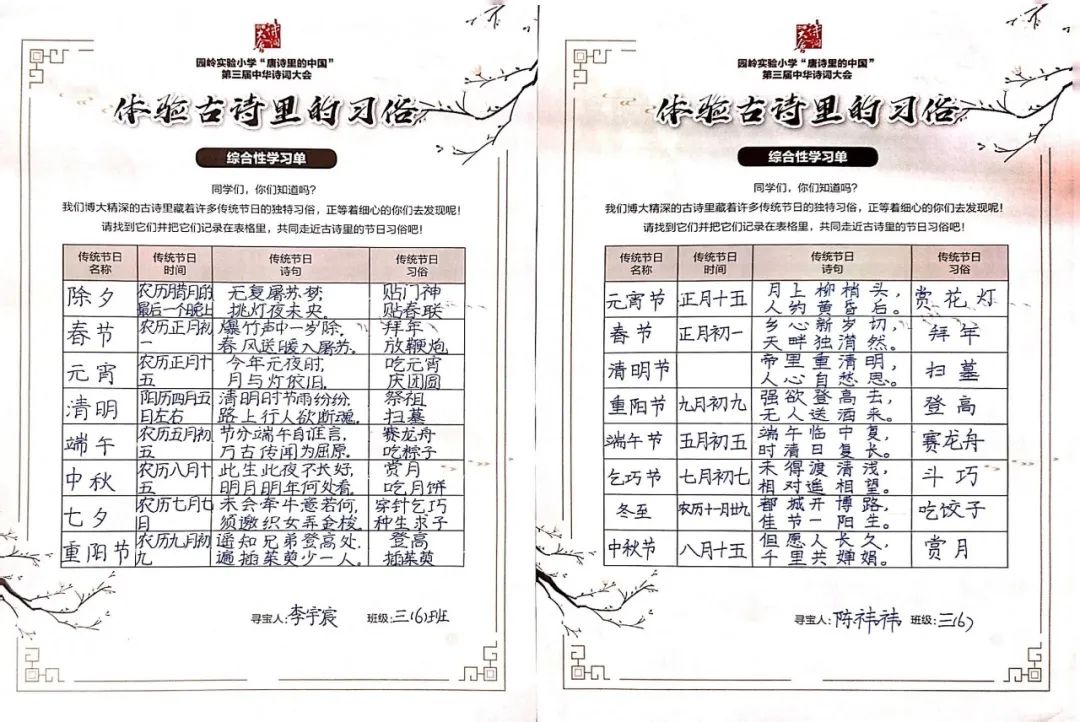 园岭实验小学“唐诗里的中国”
第三届中华诗词大会
体验古诗里的习俗
综合性学习单
同学们，你们知道吗？
我们博大精深的古诗里藏着许多传统节日的独特习俗，正等着细心的你们去发现呢！
请找到它们并把它们记录在表格里，共同走近古诗里的节日习俗吧！
传统节日名称 传统节日时间 传统节日诗句 传统节日习俗
除夕 农历腊月的最后一个晚上 无复屠苏梦，挑灯夜未央。 贴门神 贴春联
春节 农历正月初一 爆竹声中一岁除，春风送暖入屠苏。 拜年 放鞭炮
元宵 农历正月十五 今年元夜时，月与灯依旧。 吃元宵 庆团圆
清明 阳历四月五日左右 清明时节雨纷纷，路上行人欲断魂。 祭祖 扫墓
端午 农历五月初五 节分端午自谁言，万古传闻为屈原。 赛龙舟 吃粽子
中秋 农历八月十五 此生此夜不长好，明月明年何处看。 赏月 吃月饼
七夕 农历七月七月 未会牵牛意若何，须邀织女弄金梭。 穿针乞巧 种生求子
重阳节 农历九月初九 遥知兄弟登高处，遍插茱萸少一人。 登高 插茱萸
寻宝人：李宇宸 班级：三（6）班
园岭实验小学“唐诗里的中国”
第三届中华诗词大会
体验古诗里的习俗
综合性学习单
同学们，你们知道吗？
我们博大精深的古诗里藏着许多传统节日的独特习俗，正等着细心的你们去发现呢！
请找到它们并把它们记录在表格里，共同走近古诗里的节日习俗吧！
传统节日名称 传统节日时间 传统节日诗句 传统节日习俗
元宵节 正月十五 月上柳梢头，人约黄昏后。 赏花灯
春节 正月初一 乡心新岁切，天畔独潸然。 拜年
清明节 帝里重清明，人心自愁思。 扫墓
重阳节 九月初九 强欲登高去，无人送酒来。 登高
端午节 五月初五 端午临中夏，时清日复长。 赛龙舟
乞巧节 七月初七 未得渡清浅，相对遥相望。 斗巧
冬至 农历十一月廿九 都城开博路，佳节一阳生。 吃饺子
中秋节 八月十五 但愿人长久，千里共婵娟。 赏月
寻宝人：陈祎祎 班级：三（6）